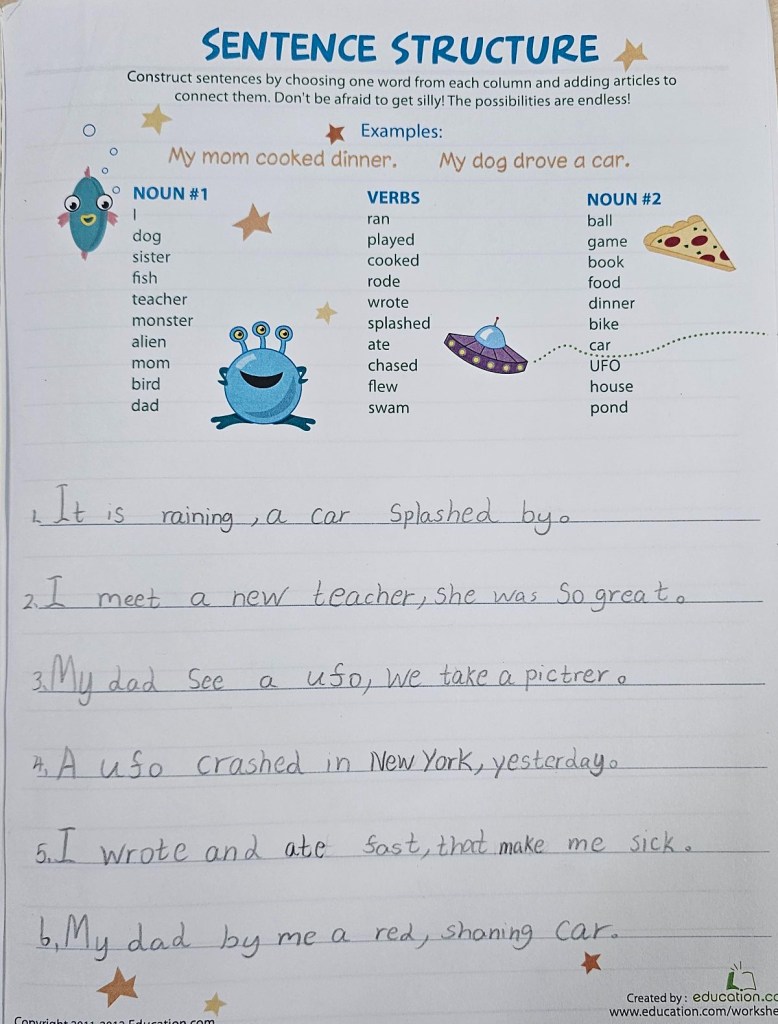 SENTENCE STRUCTURE
Construct sentences by choosing one word from each column and adding articles to
connect them. Don't be afraid to get silly! The possibilities are endless!
Examples:
My mom cooked dinner. My dog drove a car.
NOUN #1 VERBS NOUN #2
I ran ball
dog played game
sister cooked book
fish rode food
teacher wrote dinner
monster splashed bike
alien ate car
mom chased UFO
bird flew house
dad swam pond
1. It is raining, a car splashed by.
2. I meet a new teacher, she was so great.
3. My dad see a ufo, we take a pictrer.
4. A ufo crashed in New York, yesterday.
5. I wrote and ate fast, that make me sick.
6. My dad by me a red, shaning car.
Created by: education.co
Copyright 2011-2012 Education.com
www.education.com/workshe